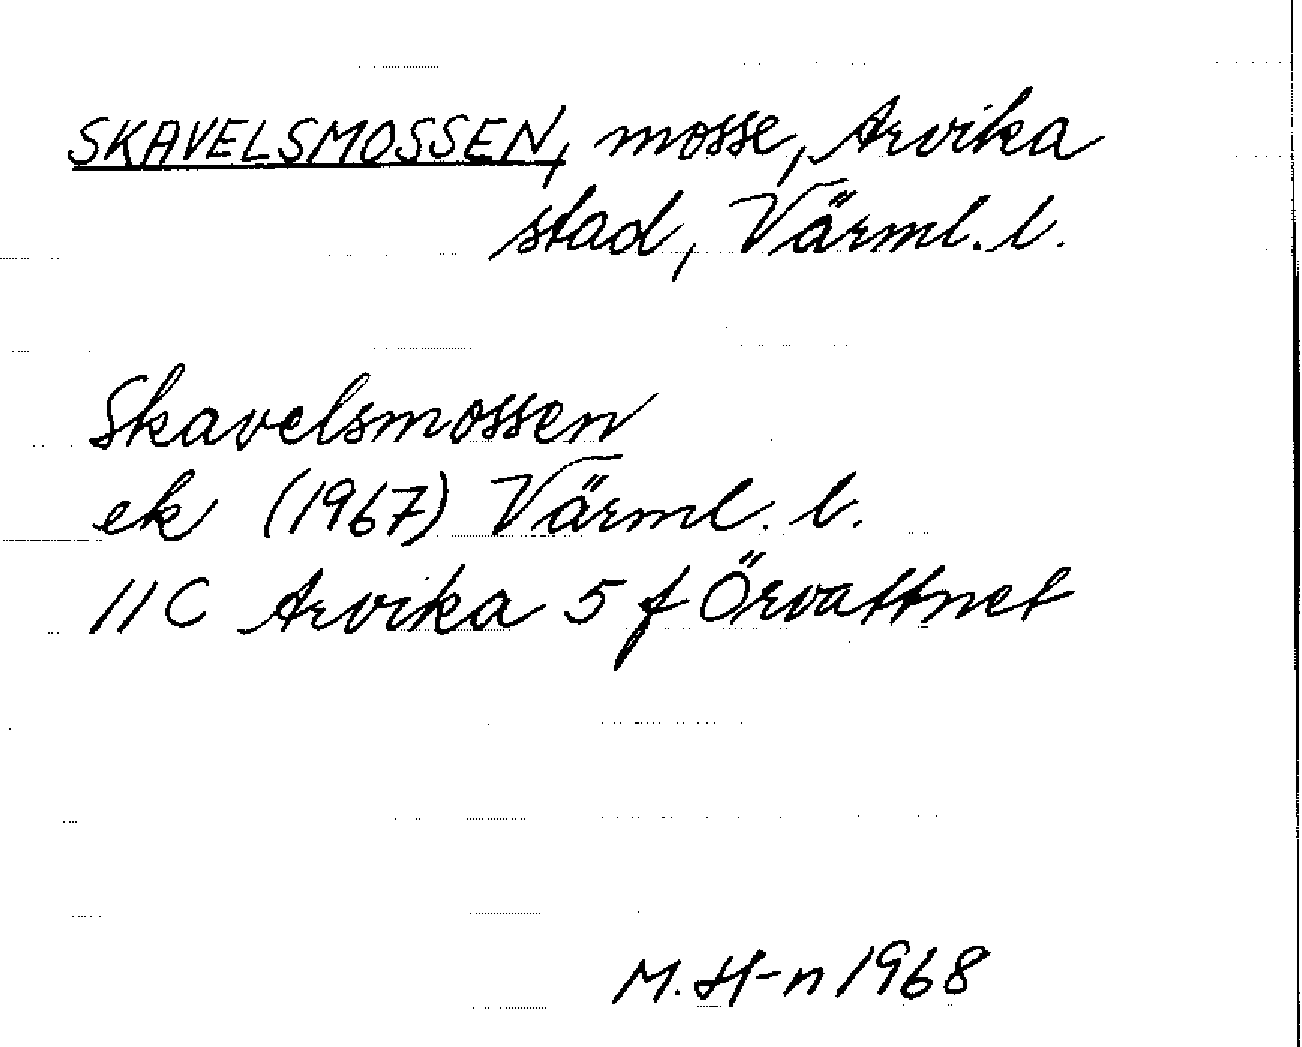 SKAVELSMOSSEN, mosse, Arvika
stad, Värml. l.
Skavelsmossen
ek (1967) Värml. l.
11C Arvika 5 f Örvattnet
M. H-n 1968